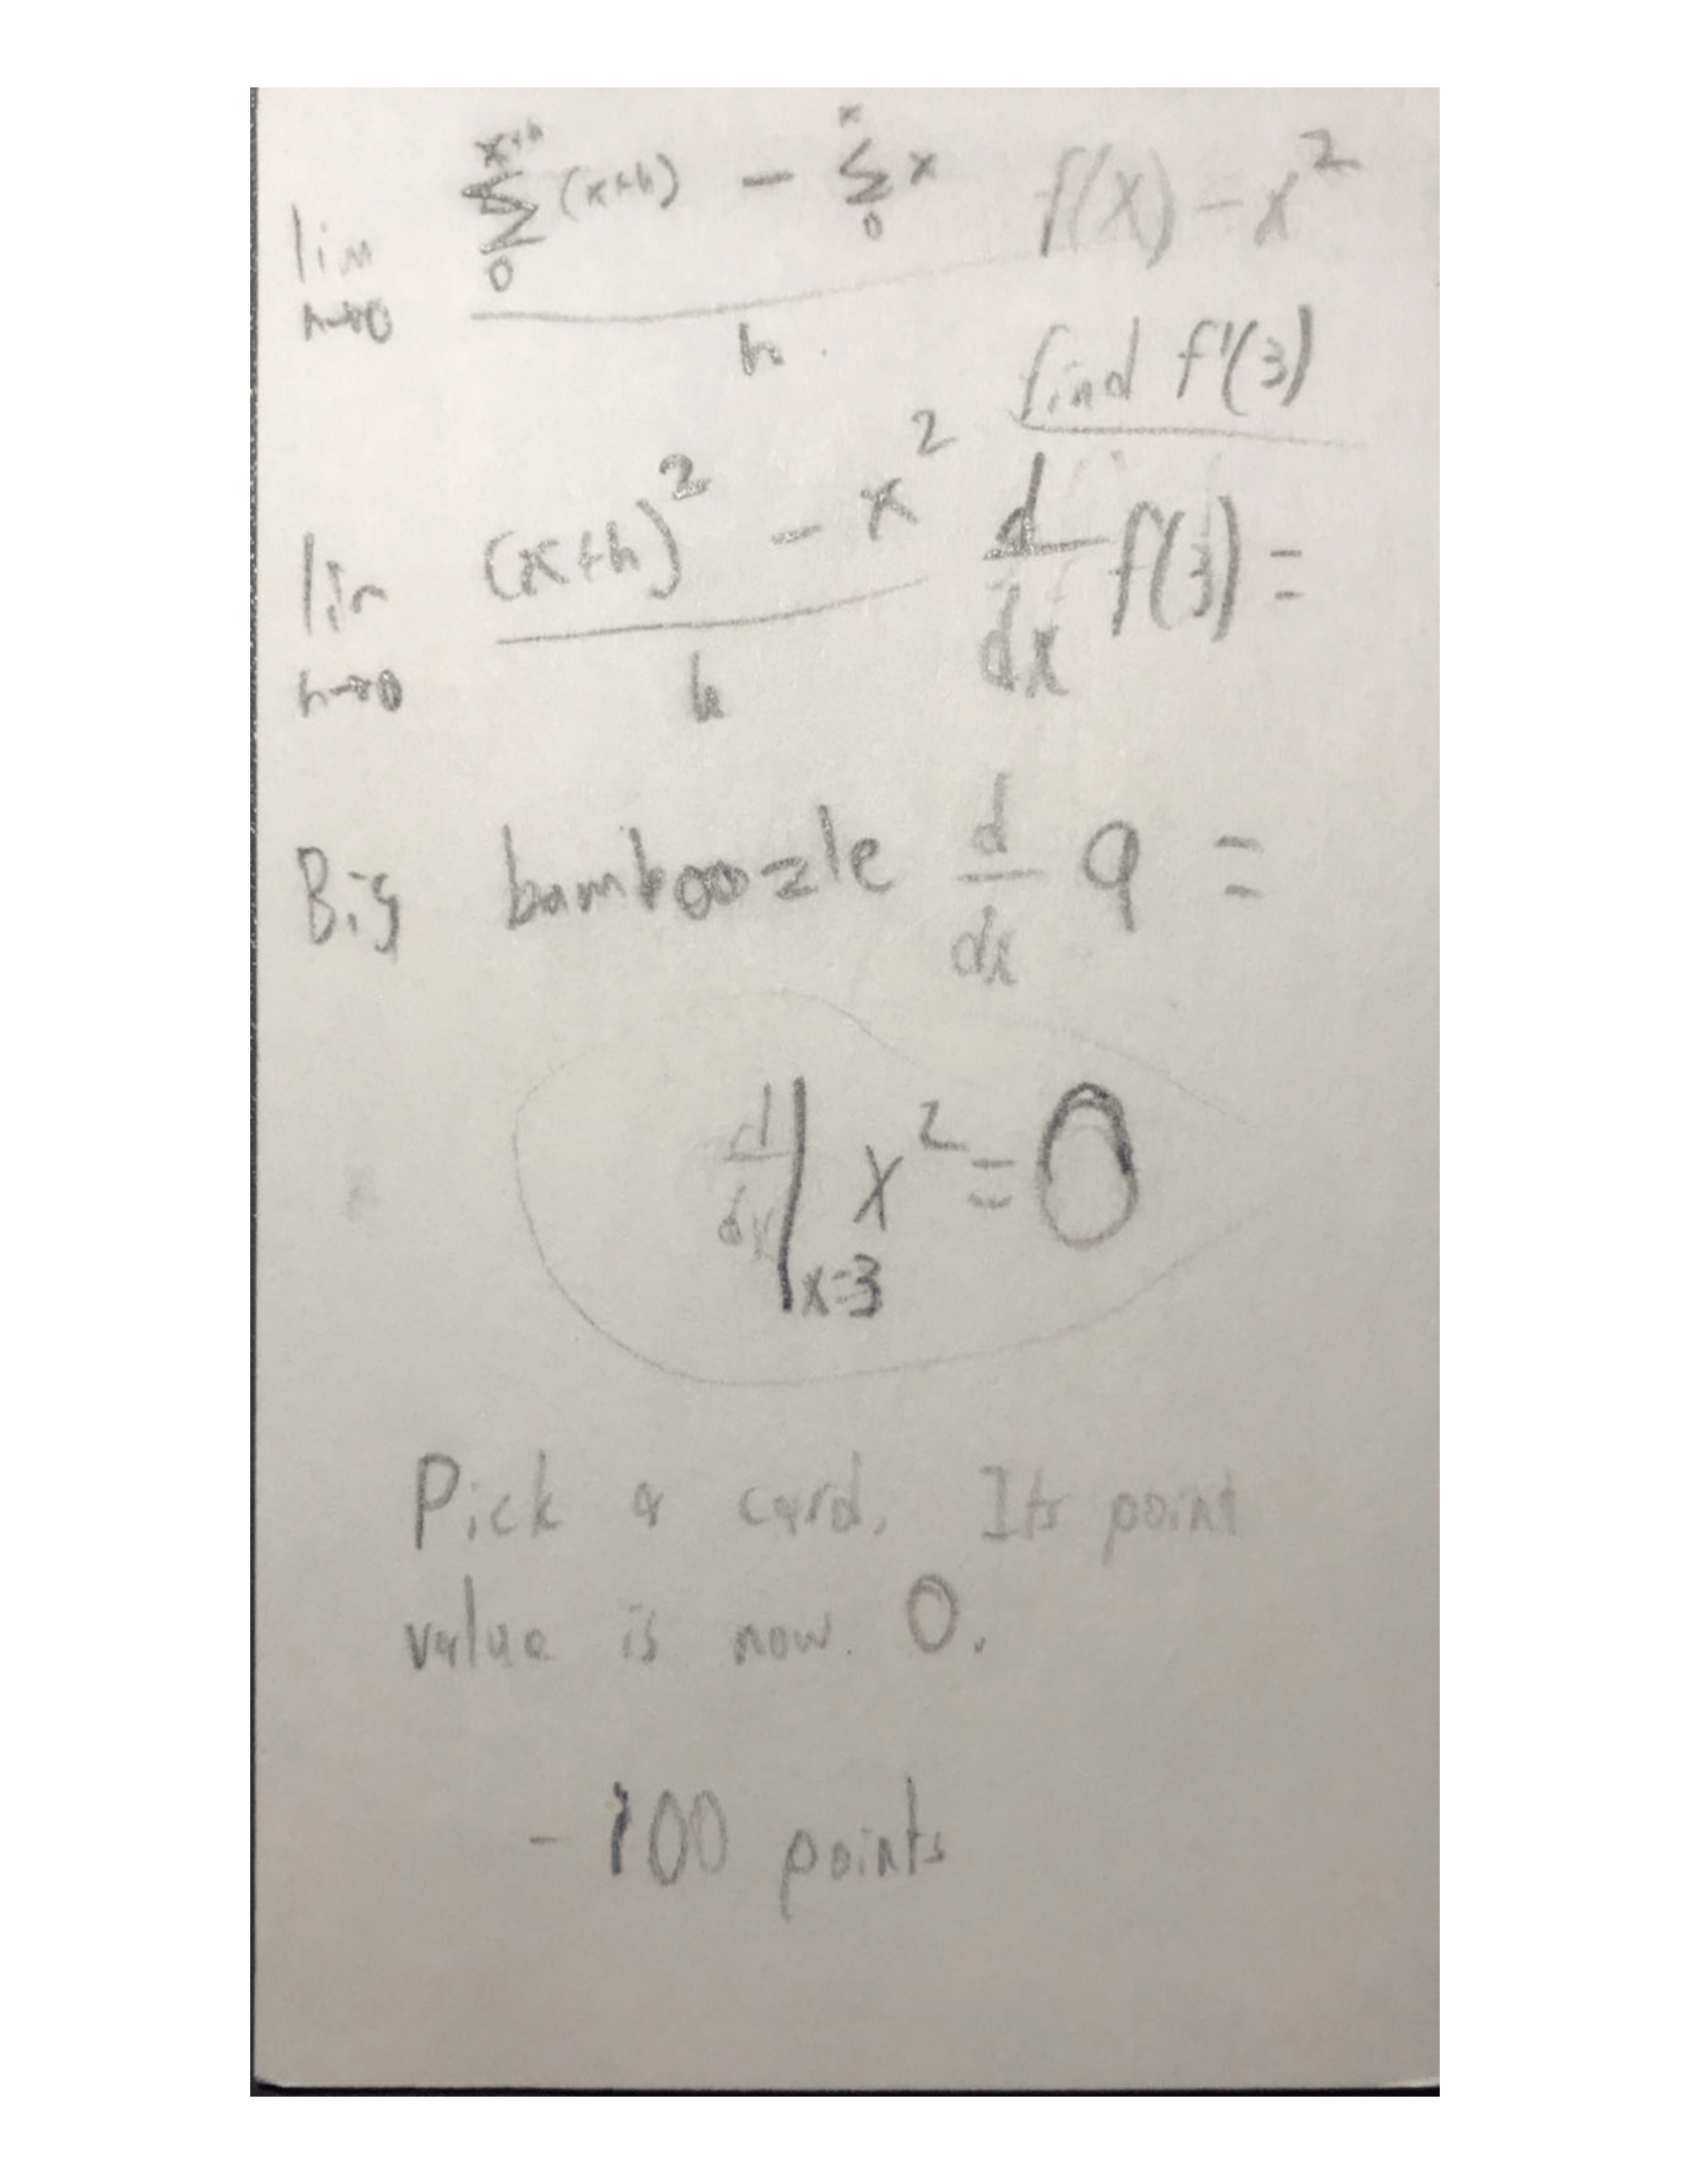 lim h→0 x+h Σ 0 (x+h) − x Σ 0 x / h
f(x) − x²
find f'(3)
lim h→0 (x+h)² − x² / h
d/dx f(3) =
Big bamboozle d/dx 9 =
d/dx |x=3 x² = 0
Pick a card. Its point
value is now 0.
-100 points